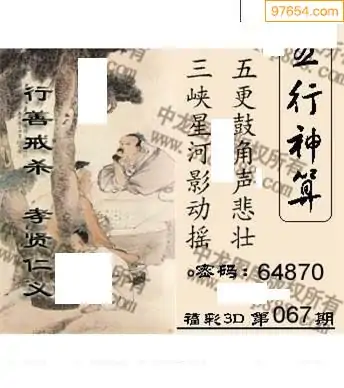 97654.com
五行神算
五更鼓角声悲壮
三峡星河影动摇
行善戒杀 孝贤仁义
密码：64870
福彩3D 第067期